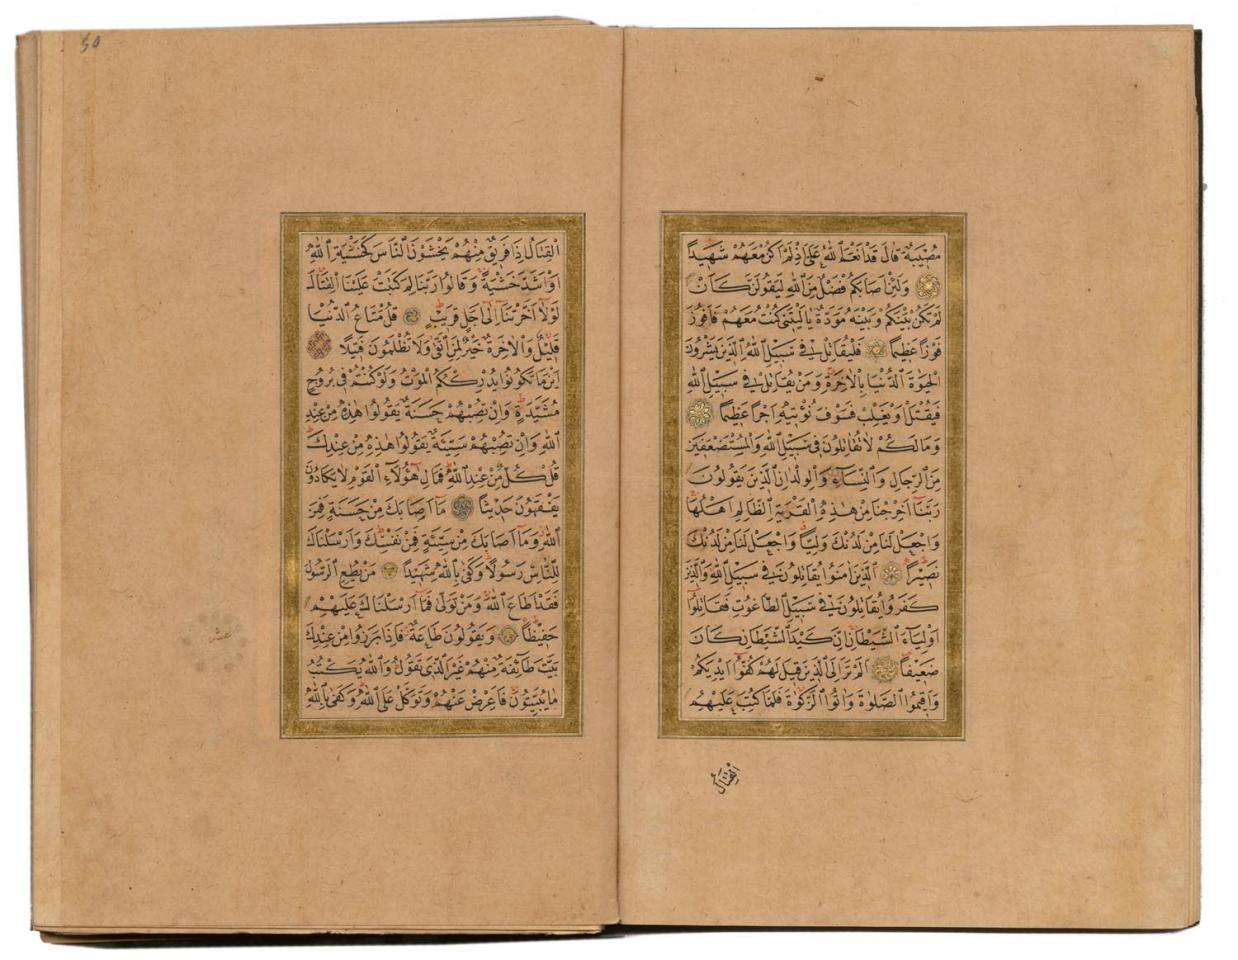 مُصِيبَةٌ قَالَ قَدْ اَنْعَمَ اللّٰهُ عَلَىَّ اِذْ لَمْ اَكُنْ مَعَهُمْ شَهِيدًا
وَلَئِنْ اَصَابَكُمْ فَضْلٌ مِنَ اللّٰهِ لَيَقُولَنَّ كَاَنْ
لَمْ تَكُنْ بَيْنَكُمْ وَبَيْنَهُ مَوَدَّةٌ يَا لَيْتَنِى كُنْتُ مَعَهُمْ فَاَفُوزَ
فَوْزًا عَظِيمًا فَلْيُقَاتِلْ فِى سَبِيلِ اللّٰهِ الَّذِينَ يَشْرُونَ
الْحَيٰوةَ الدُّنْيَا بِالْاٰخِرَةِ وَمَنْ يُقَاتِلْ فِى سَبِيلِ اللّٰهِ
فَيُقْتَلْ اَوْ يَغْلِبْ فَسَوْفَ نُؤْتِيهِ اَجْرًا عَظِيمًا
وَمَا لَكُمْ لَا تُقَاتِلُونَ فِى سَبِيلِ اللّٰهِ وَالْمُسْتَضْعَفِينَ
مِنَ الرِّجَالِ وَالنِّسَاءِ وَالْوِلْدَانِ الَّذِينَ يَقُولُونَ
رَبَّنَا اَخْرِجْنَا مِنْ هٰذِهِ الْقَرْيَةِ الظَّالِمِ اَهْلُهَا
وَاجْعَلْ لَنَا مِنْ لَدُنْكَ وَلِيًّا وَاجْعَلْ لَنَا مِنْ لَدُنْكَ
نَصِيرًا اَلَّذِينَ اٰمَنُوا يُقَاتِلُونَ فِى سَبِيلِ اللّٰهِ وَالَّذِينَ
كَفَرُوا يُقَاتِلُونَ فِى سَبِيلِ الطَّاغُوتِ فَقَاتِلُوا
اَوْلِيَاءَ الشَّيْطَانِ اِنَّ كَيْدَ الشَّيْطَانِ كَانَ
ضَعِيفًا اَلَمْ تَرَ اِلَى الَّذِينَ قِيلَ لَهُمْ كُفُّوا اَيْدِيَكُمْ
وَاَقِيمُوا الصَّلٰوةَ وَاٰتُوا الزَّكٰوةَ فَلَمَّا كُتِبَ عَلَيْهِمُ
القتال
50
الْقِتَالُ اِذَا فَرِيقٌ مِنْهُمْ يَخْشَوْنَ النَّاسَ كَخَشْيَةِ اللّٰهِ
اَوْ اَشَدَّ خَشْيَةً وَقَالُوا رَبَّنَا لِمَ كَتَبْتَ عَلَيْنَا الْقِتَالَ
لَوْلَا اَخَّرْتَنَا اِلٰى اَجَلٍ قَرِيبٍ قُلْ مَتَاعُ الدُّنْيَا
قَلِيلٌ وَالْاٰخِرَةُ خَيْرٌ لِمَنِ اتَّقٰى وَلَا تُظْلَمُونَ فَتِيلًا
اَيْنَ مَا تَكُونُوا يُدْرِكْكُمُ الْمَوْتُ وَلَوْ كُنْتُمْ فِى بُرُوجٍ
مُشَيَّدَةٍ وَاِنْ تُصِبْهُمْ حَسَنَةٌ يَقُولُوا هٰذِهِ مِنْ عِنْدِ
اللّٰهِ وَاِنْ تُصِبْهُمْ سَيِّئَةٌ يَقُولُوا هٰذِهِ مِنْ عِنْدِكَ
قُلْ كُلٌّ مِنْ عِنْدِ اللّٰهِ فَمَالِ هٰؤُلَاءِ الْقَوْمِ لَا يَكَادُونَ
يَفْقَهُونَ حَدِيثًا مَا اَصَابَكَ مِنْ حَسَنَةٍ فَمِنَ
اللّٰهِ وَمَا اَصَابَكَ مِنْ سَيِّئَةٍ فَمِنْ نَفْسِكَ وَاَرْسَلْنَاكَ
لِلنَّاسِ رَسُولًا وَكَفٰى بِاللّٰهِ شَهِيدًا مَنْ يُطِعِ الرَّسُولَ
فَقَدْ اَطَاعَ اللّٰهَ وَمَنْ تَوَلّٰى فَمَا اَرْسَلْنَاكَ عَلَيْهِمْ
حَفِيظًا وَيَقُولُونَ طَاعَةٌ فَاِذَا بَرَزُوا مِنْ عِنْدِكَ
بَيَّتَ طَائِفَةٌ مِنْهُمْ غَيْرَ الَّذِى تَقُولُ وَاللّٰهُ يَكْتُبُ
مَا يُبَيِّتُونَ فَاَعْرِضْ عَنْهُمْ وَتَوَكَّلْ عَلَى اللّٰهِ وَكَفٰى بِاللّٰهِ
عشر